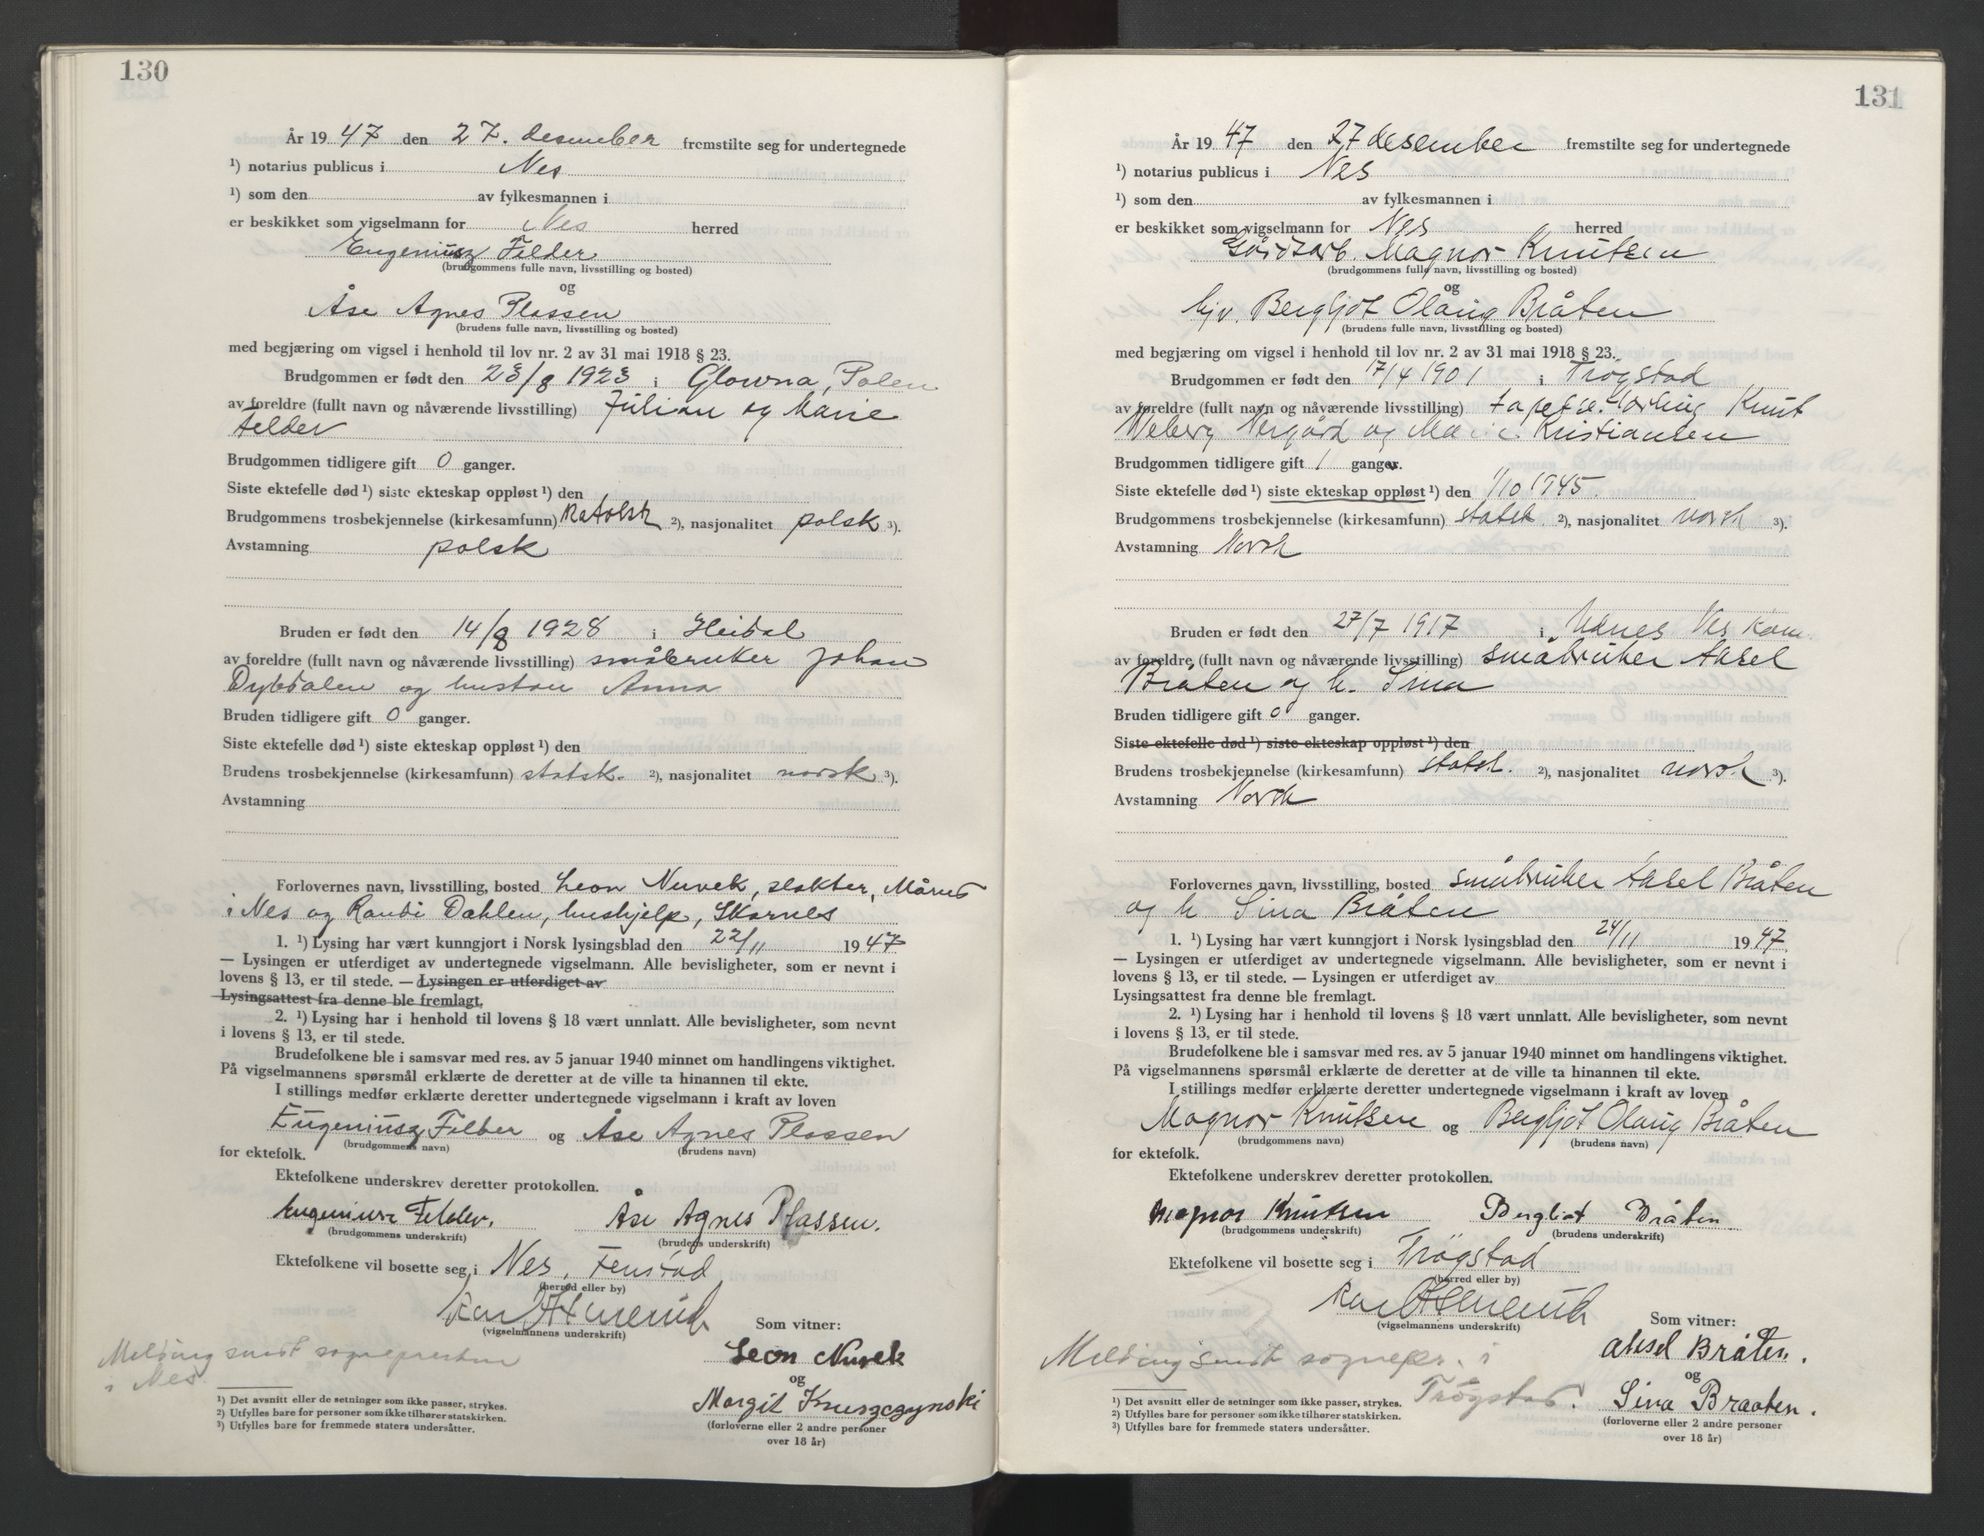 130
År 19 47 den 27. desember fremstilte seg for undertegnede
¹) notarius publicus i Nes
¹) som den av fylkesmannen i
er beskikket som vigselmann for Nes herred
Eugeniusz Felder
(brudgommens fulle navn, livsstilling og bosted)
og
Åse Agnes Plassen
(brudens fulle navn, livsstilling og bosted)
med begjæring om vigsel i henhold til lov nr. 2 av 31 mai 1918 § 23.
Brudgommen er født den 23/8 1923 i Glowna, Polen
av foreldre (fullt navn og nåværende livsstilling) Julian og Marie
Felder
Brudgommen tidligere gift 0 ganger.
Siste ektefelle død ¹) siste ekteskap oppløst ¹) den
Brudgommens trosbekjennelse (kirkesamfunn) Katolsk ²), nasjonalitet polsk ³).
Avstamning polsk
Bruden er født den 14/8 1928 i Heidal
av foreldre (fullt navn og nåværende livsstilling) småbruker Johan
Dybdalen og hustru Anna
Bruden tidligere gift 0 ganger.
Siste ektefelle død ¹) siste ekteskap oppløst ¹) den
Brudens trosbekjennelse (kirkesamfunn) statsk. ²), nasjonalitet norsk ³).
Avstamning
Forlovernes navn, livsstilling, bosted Leon Nuvek, slakter, Mårud
i Nes og Randi Dahlen, hushjelp, Skarnes
1. ¹) Lysing har vært kunngjort i Norsk lysingsblad den 22/11 19 47
— Lysingen er utferdiget av undertegnede vigselmann. Alle bevisligheter, som er nevnt i
lovens § 13, er til stede. — Lysingen er utferdiget av
Lysingsattest fra denne ble fremlagt.
2. ¹) Lysing har i henhold til lovens § 18 vært unnlatt. Alle bevisligheter, som nevnt
i lovens § 13, er til stede.
Brudefolkene ble i samsvar med res. av 5 januar 1940 minnet om handlingens viktighet.
På vigselmannens spørsmål erklærte de deretter at de ville ta hinannen til ekte.
I stillings medfør erklærte deretter undertegnede vigselmann i kraft av loven
Eugeniusz Felder og Åse Agnes Plassen
(brudgommens navn) (brudens navn)
for ektefolk.
Ektefolkene underskrev deretter protokollen.
Eugeniusz Felder. Åse Agnes Plassen.
(brudgommens underskrift) (brudens underskrift)
Ektefolkene vil bosette seg i Nes, Fenstad
(herred eller by)
(vigselmannens underskrift)
Som vitner:
Melding sendt sognepresten
i Nes
Leon Nuvek
og
Margit Kruszczynski
(forloverne eller 2 andre personer
over 18 år)
¹) Det avsnitt eller de setninger som ikke passer, strykes.
²) Utfylles bare for personer som ikke tilhører statskirken.
³) Utfylles bare for fremmede staters undersåtter.
131
År 19 47 den 27 desember fremstilte seg for undertegnede
¹) notarius publicus i Nes
¹) som den av fylkesmannen i
er beskikket som vigselmann for Nes herred
Gårdsarb. Magnor Knutsen
(brudgommens fulle navn, livsstilling og bosted)
og
hjv. Bergljot Olaug Bråten
(brudens fulle navn, livsstilling og bosted)
med begjæring om vigsel i henhold til lov nr. 2 av 31 mai 1918 § 23.
Brudgommen er født den 17/4 1901 i Trøgstad
av foreldre (fullt navn og nåværende livsstilling) Knut
Weberg og Marie Kristiansen
Brudgommen tidligere gift 1 ganger.
Siste ektefelle død ¹) siste ekteskap oppløst ¹) den 1/10 1945.
Brudgommens trosbekjennelse (kirkesamfunn) statsk ²), nasjonalitet norsk ³).
Avstamning Norsk
Bruden er født den 27/7 1917 i Udnes Nes kom.
av foreldre (fullt navn og nåværende livsstilling) småbruker Aksel
Bråten og h. Sina
Bruden tidligere gift 0 ganger.
Siste ektefelle død ¹) siste ekteskap oppløst ¹) den
Brudens trosbekjennelse (kirkesamfunn) statsk. ²), nasjonalitet norsk ³).
Avstamning Norsk
Forlovernes navn, livsstilling, bosted småbruker Aksel Bråten
og h Sina Bråten
1. ¹) Lysing har vært kunngjort i Norsk lysingsblad den 24/11 19 47
— Lysingen er utferdiget av undertegnede vigselmann. Alle bevisligheter, som er nevnt i
lovens § 13, er til stede. — Lysingen er utferdiget av
Lysingsattest fra denne ble fremlagt.
2. ¹) Lysing har i henhold til lovens § 18 vært unnlatt. Alle bevisligheter, som nevnt
i lovens § 13, er til stede.
Brudefolkene ble i samsvar med res. av 5 januar 1940 minnet om handlingens viktighet.
På vigselmannens spørsmål erklærte de deretter at de ville ta hinannen til ekte.
I stillings medfør erklærte deretter undertegnede vigselmann i kraft av loven
Magnor Knutsen og Bergljot Olaug Bråten
(brudgommens navn) (brudens navn)
for ektefolk.
Ektefolkene underskrev deretter protokollen.
Magnor Knutsen Bergliot Bråten.
(brudgommens underskrift) (brudens underskrift)
Ektefolkene vil bosette seg i Trøgstad
(herred eller by)
(vigselmannens underskrift)
Som vitner:
Melding sendt sognepr. i
Trøgstad.
Aksel Bråten.
og
Sina Braaten.
(forloverne eller 2 andre personer
over 18 år)
¹) Det avsnitt eller de setninger som ikke passer, strykes.
²) Utfylles bare for personer som ikke tilhører statskirken.
³) Utfylles bare for fremmede staters undersåtter.